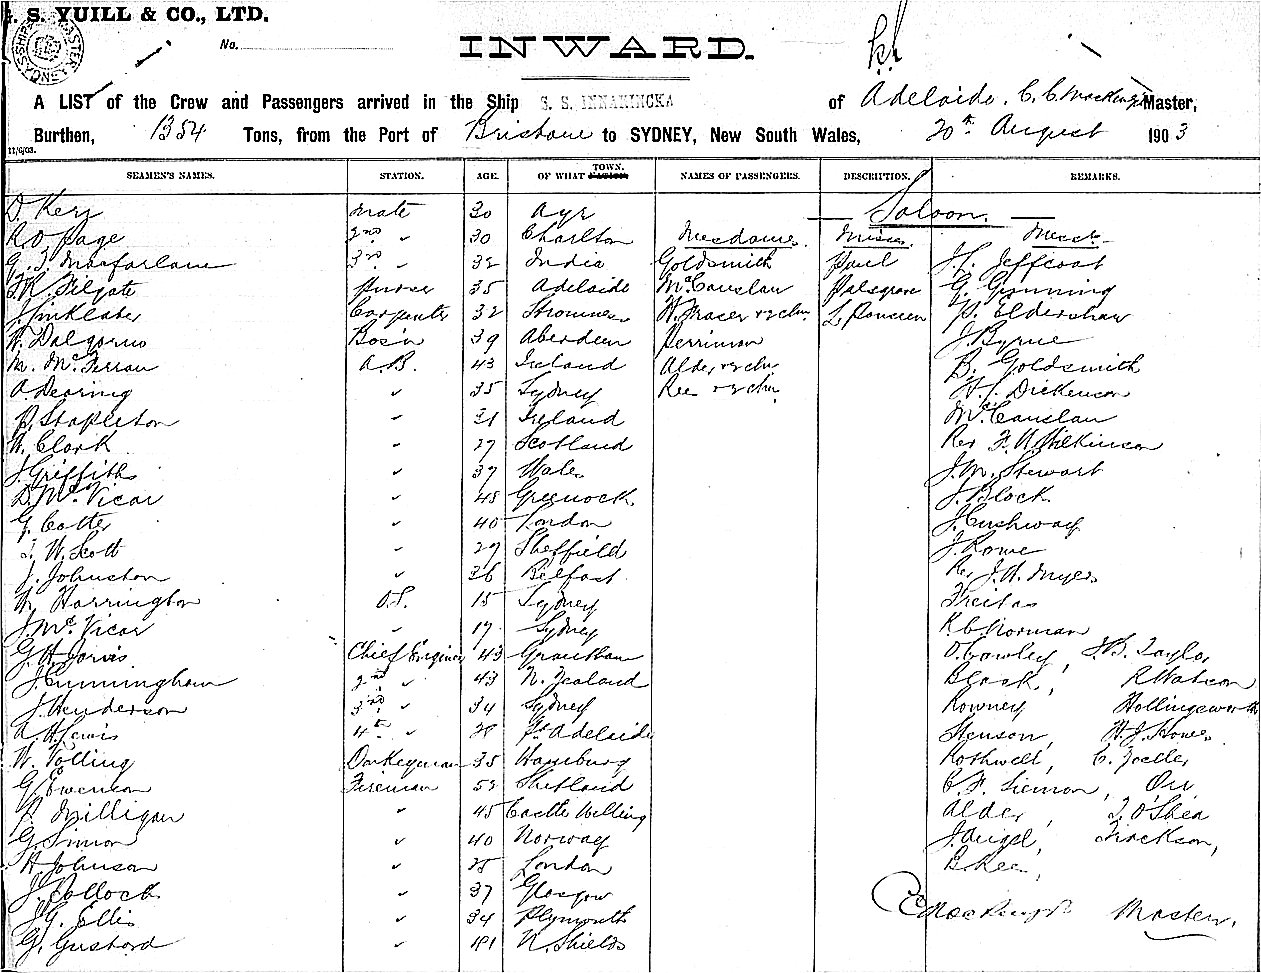 G. S. YUILL & CO., LTD.
No.
INWARD.
A LIST of the Crew and Passengers arrived in the Ship S. S. INNAMINCKA of Adelaide, C. C. Mackenzie Master,
Burthen, 1354 Tons, from the Port of Brisbane to SYDNEY, New South Wales, 20th August 1903
11/6/03.
SEAMEN'S NAMES. STATION. AGE. OF WHAT NATION TOWN. NAMES OF PASSENGERS. DESCRIPTION. REMARKS.
Saloon.
D. Kerr Mate 30 Ayr
R. O. Page 2nd " 30 Charlton Mesdames. Misses. Messrs
G. J. Macfarlane 3rd " 32 India Goldsmith Paul J. J. Jeffcoat
Filgate Purser 35 Adelaide McCauslan Palsgrave G. Gunning
J. Sinklater Carpenter 32 Stromness W. Fraser + 2 chn. P. Eldershaw
W. Dalgarno Bos'n 39 Aberdeen Perriman J. Byrne
M. McFerran A.B. 43 Ireland Alder + 2 chn. B. Goldsmith
A. Dearing " 35 Sydney Ree + 2 chn. Dickenson
P. Stapleton " 31 Ireland McCauslan
W. Clark " 27 Scotland Rev F. A. Wilkinson
J. Griffiths " 37 Wales J. M. Stewart
D. McVicar " 48 Greenock J. Block
G. Cotter " 40 London J. Cushway
J. W. Scott " 29 Sheffield J. Rowe
J. Johnston " 36 Belfast Rev J. A. Myers
W. Harrington O.S. 15 Sydney Freitas
J. McVicar " 17 Sydney K. C. Norman
G. H. Jarvis Chief Engineer 43 Grantham O. Cowley, J. B. Taylor
J. Cunningham 2nd " 43 N. Zealand Black, R. Watson
J. Henderson 3rd " 34 Sydney Rowney Hollingsworth
A. H. Lewis 4th " 28 Pt Adelaide Stenson, H. J. Howes
W. Tolling Donkeyman 35 Hamburg Rothwell, C. Zoeller
G. Ewenson Fireman 52 Shetland C. F. Siemon, Orr
Milligan " 45 Castle Welling Alder, J. O'Shea
G. Simon " 40 Norway J. Angel,
A. Johnson " 25 London
J. Pollock " 37 Glasgow
J. G. Ellis " 34 Plymouth C C Mackenzie Master.
G. Gustard " 41 N. Shields